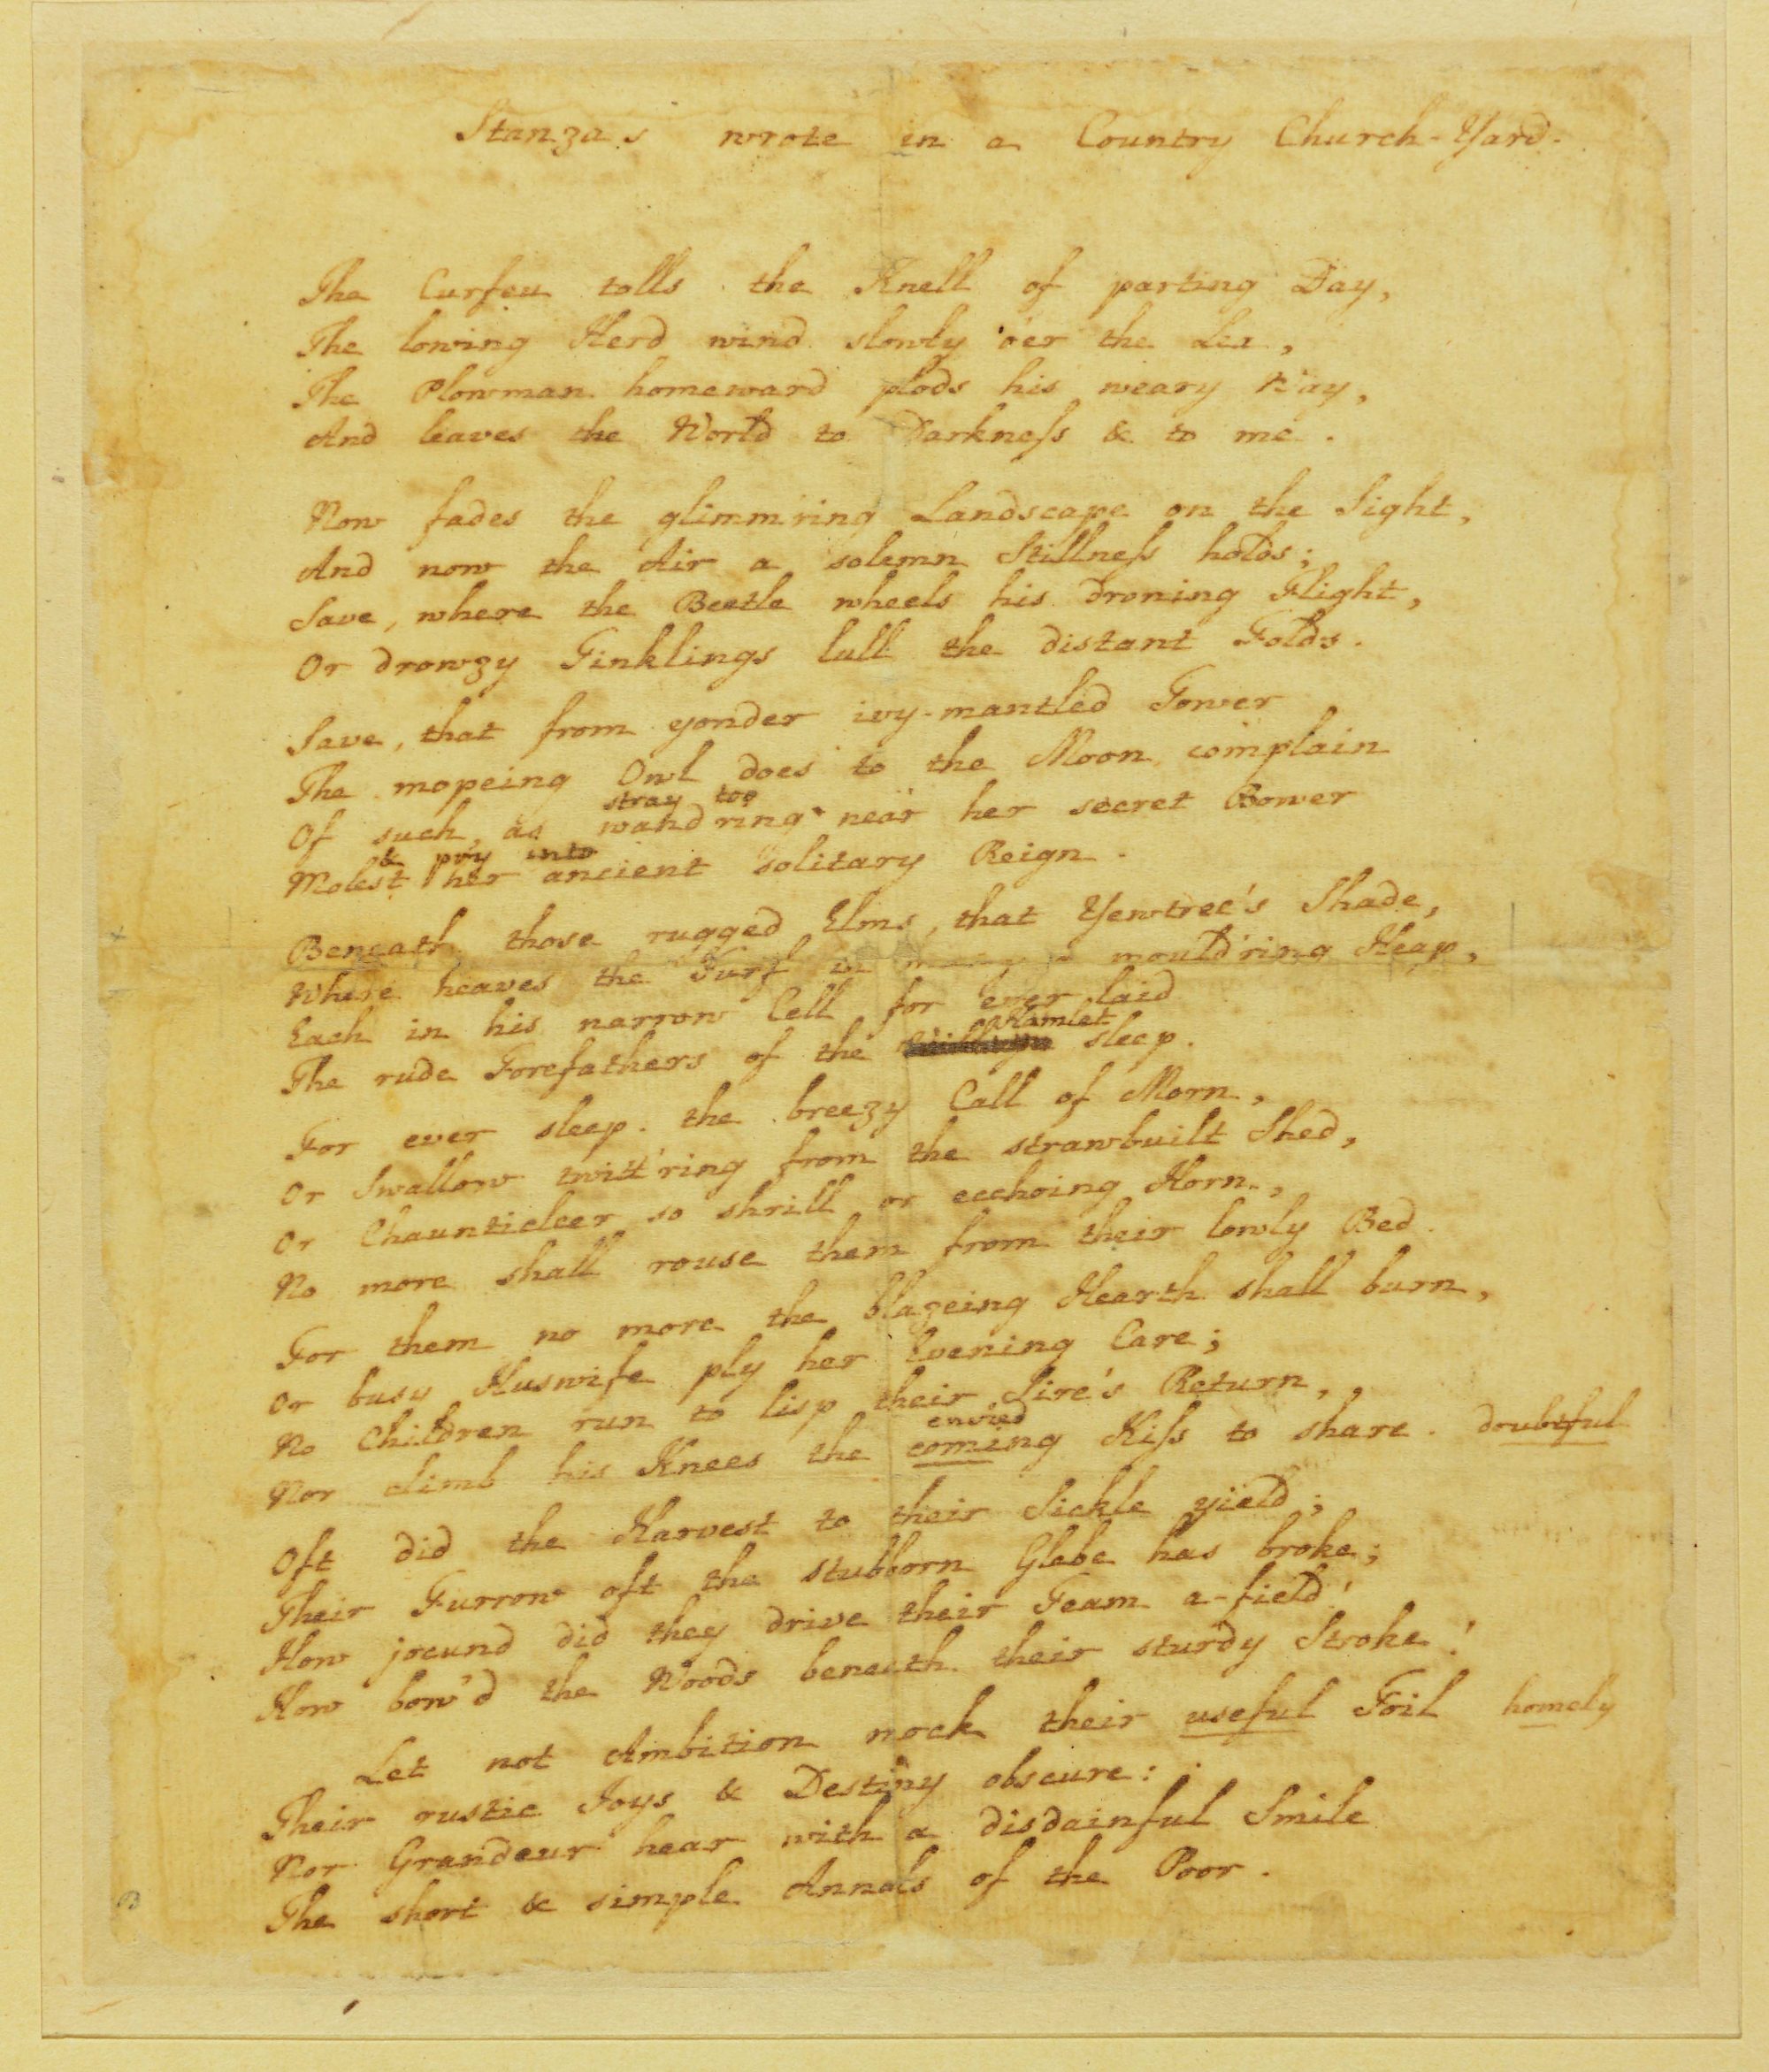 Stanza's wrote in a Country Church-Yard.
The Curfeu tolls the Knell of parting Day,
The lowing Herd wind slowly o'er the Lea,
The Plowman homeward plods his weary Way,
And leaves the World to Darkneſs & to me.
Now fades the glimm'ring Landscape on the Sight,
And now the Air a solemn Stillneſs holds;
Save, where the Beetle wheels his droning Flight,
Or drowzy Tinklings lull the distant Folds.
Save, that from yonder ivy-mantled Tower
The mopeing Owl does to the Moon complain
stray too
Of such, as wand'ring near her secret Bower
& pry into
Molest her ancient solitary Reign.
Beneath those rugged Elms, that Yewtree's Shade,
Where heaves the Turf in many a mould'ring Heap,
Each in his narrow Cell for ever laid
Hamlet
The rude Forefathers of the sleep.
For ever sleep. the breezy Call of Morn,
Or Swallow twitt'ring from the strawbuilt Shed,
Or Chaunticleer so shrill or ecchoing Horn,
No more shall rouse them from their lowly Bed.
For them no more the blazeing Hearth shall burn,
Or busy Huswife ply her Evening Care;
No Children run to lisp their Sire's Return,
envied
Nor climb his Knees the coming Kiſs to share. doubtful
Oft did the Harvest to their Sickle yield;
Their Furrow oft the stubborn Glebe has broke;
How jocund did they drive their Team a-field!
How bow'd the Woods beneath their sturdy Stroke!
Let not Ambition mock their useful Toil homely
Their rustic Joys & Destiny obscure:
Nor Grandeur hear with a disdainful Smile
The short & simple Annals of the Poor.